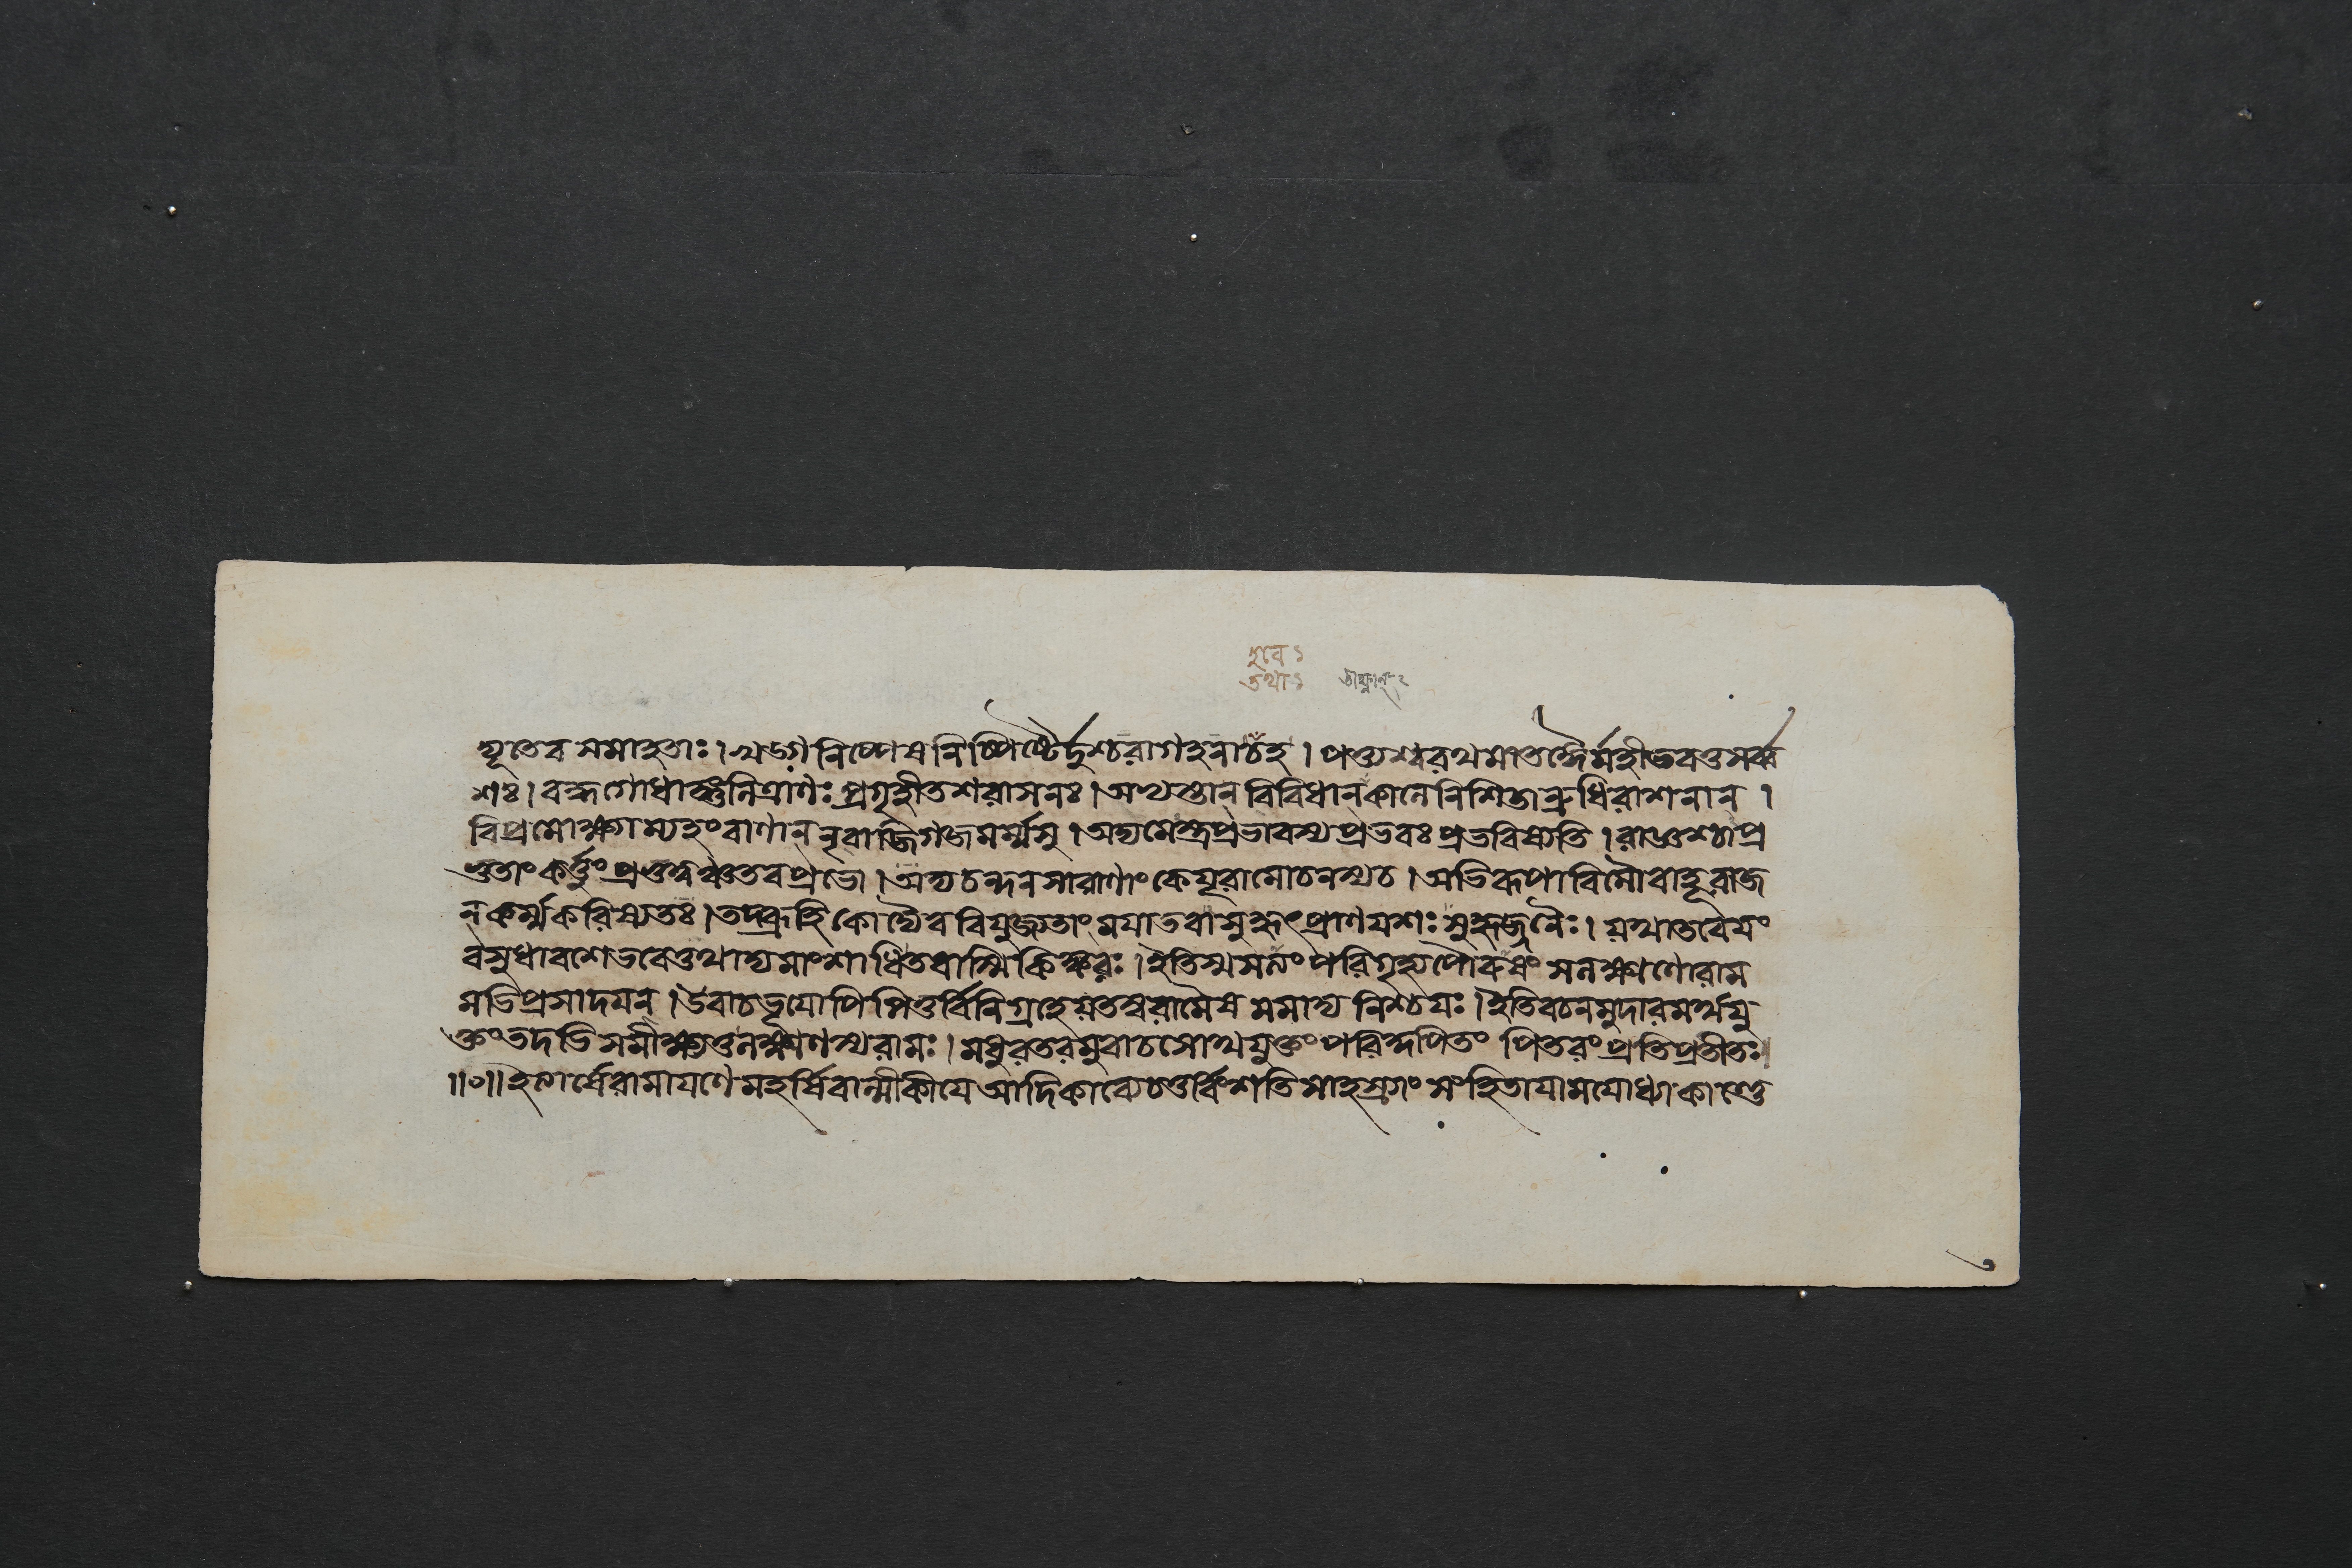 হুবে ১
তথা ১ তীক্ষ্ণান্ ২
দ্যূতেব সমাহতাঃ। খড্গনিষ্পেষনিষ্পিষ্টৈর্দুশ্চরাগহনাচহ। পত্ত্যশ্বরথমাতঙ্গৈর্মহীভবতুসর্ব্ব
শঃ। বদ্ধগোধাঙ্গুলিত্রাণঃ প্রগৃহীতশরাসনঃ। বিবিধান্ কালে নিশিতান্রুধিরাশনান্।
বিপ্রমোক্ষ্যাম্যহংবাণান্ নৃবাজিগজমর্ম্মসু। অদ্যমেস্ত্রপ্রভাবস্যপ্রভবঃ প্রভবিষ্যতি। রাজ্ঞশ্চাপ্র
ভুতাং কর্ত্তুং প্রভুত্বঞ্চতবপ্রভো। অদ্যচন্দনসারাণাং কেয়ূরামোচনস্যচ। অভিরূপাবিমৌবাহূরাজ
ন্ কর্ম্মকরিষ্যতঃ। তদ্ব্রূহি কোদ্যৈববিযুজ্যতাং ময়াতবাসুহৃৎপ্রাণযশঃ সুহৃজ্জনৈঃ। যথাতবেয়ং
বসুধাবশেভবেত্তথাদ্যমাংশাধিতবাস্মিকিঙ্করঃ। ইতিস্ম পরিগৃহ্যপৌরুষং সলক্ষ্মণোরাম
মভিপ্রসাদয়ন্। উবাচভূয়োপিপিতুর্বিনিগ্রহেযতস্বরামৈষ মমাদ্য নিশ্চয়ঃ। ইতিবচনমুদারমর্থযু
ক্তং তদভিসমীক্ষ্যতুলক্ষ্মণস্যরামঃ। মধুরতরমুবাচসোথযুক্তং পিতরং প্রতিপ্রতীতঃ
॥০॥ ইত্যার্ষেরামায়ণে মহর্ষিবাল্মীকীয়ে আদিকাব্যেচতুর্ব্বিংশতিসাহস্র্যাং সংহিতায়ামযোধ্যাকাণ্ডে